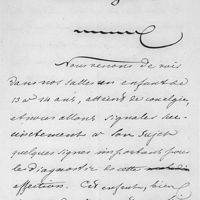 Nous venons de voir
dans nos salles un enfant de
13 à 14 ans, atteint de coxalgie,
et nous allons signaler suc-
cinctement à son sujet
quelques signes importants pour
le diagnostic de cette
affection. Cet enfant, bien